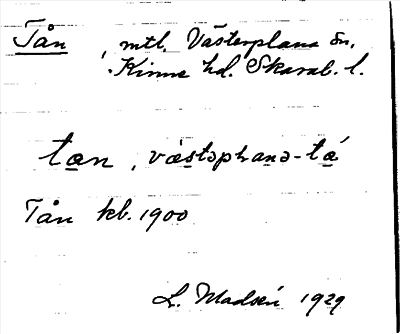 Tån, mtl. Västerplana sn.
Kinne hd. Skarab. l.
tan, västəplanə-tá
Tån kb. 1900
L. Madsén 1929